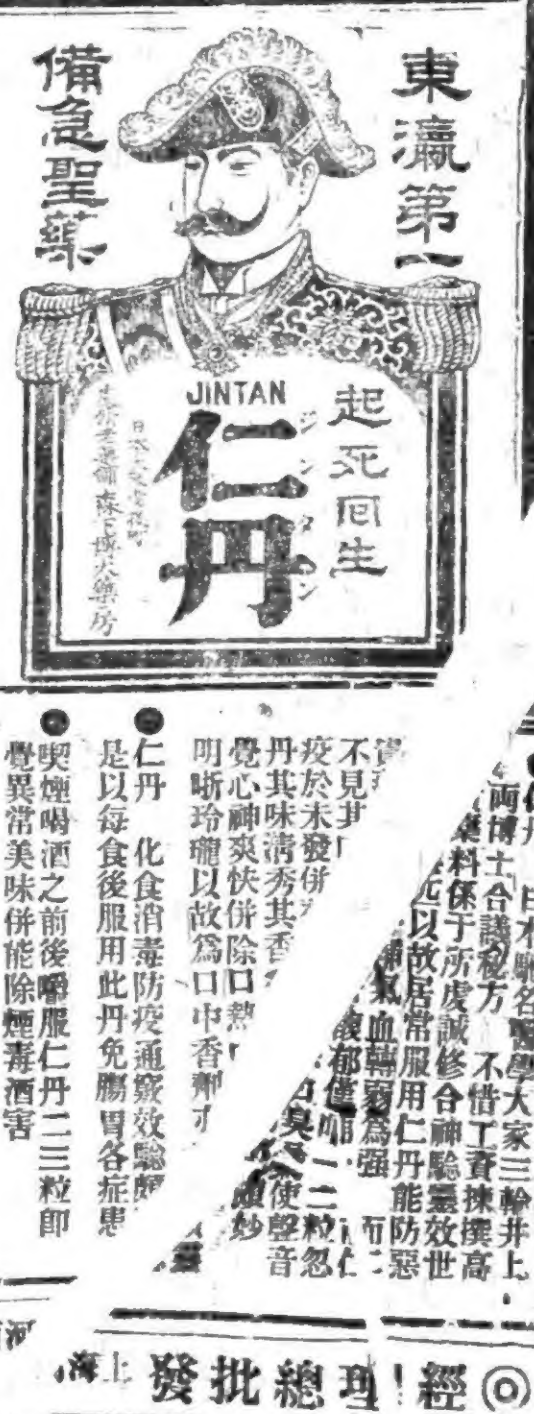 東瀛第一
備急聖藥
起死回生
JINTAN
仁丹
ジンタン
森下博大藥房
日本馳名醫學大家三輪井上
兩博士合議秘方 不惜工資揀撰高
藥料係于所虔誠修合神驗靈效世
以故居常服用仁丹能防惡
補氣血轉弱爲强
不見其
疫於未發併
郁僅 一二粒忽
丹其味淸秀其香
臭 使聲音
覺心神爽快併除口熱
妙
明晰玲瓏以故爲口中香劑
●仁丹 化食消毒防疫通竅效驗
是以每食後服用此丹免腸胃各症患
●喫煙喝酒之前後嚼服仁丹二三粒即
覺異常美味併能除煙毒酒害
◎經理總批發
上海
河